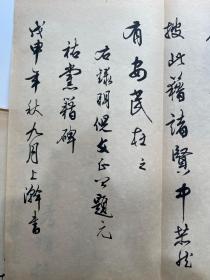 披此籍諸賢中榮然
有安民在之
右錄明倪文正公題元
祐黨籍碑
戊申年秋九月上澣書